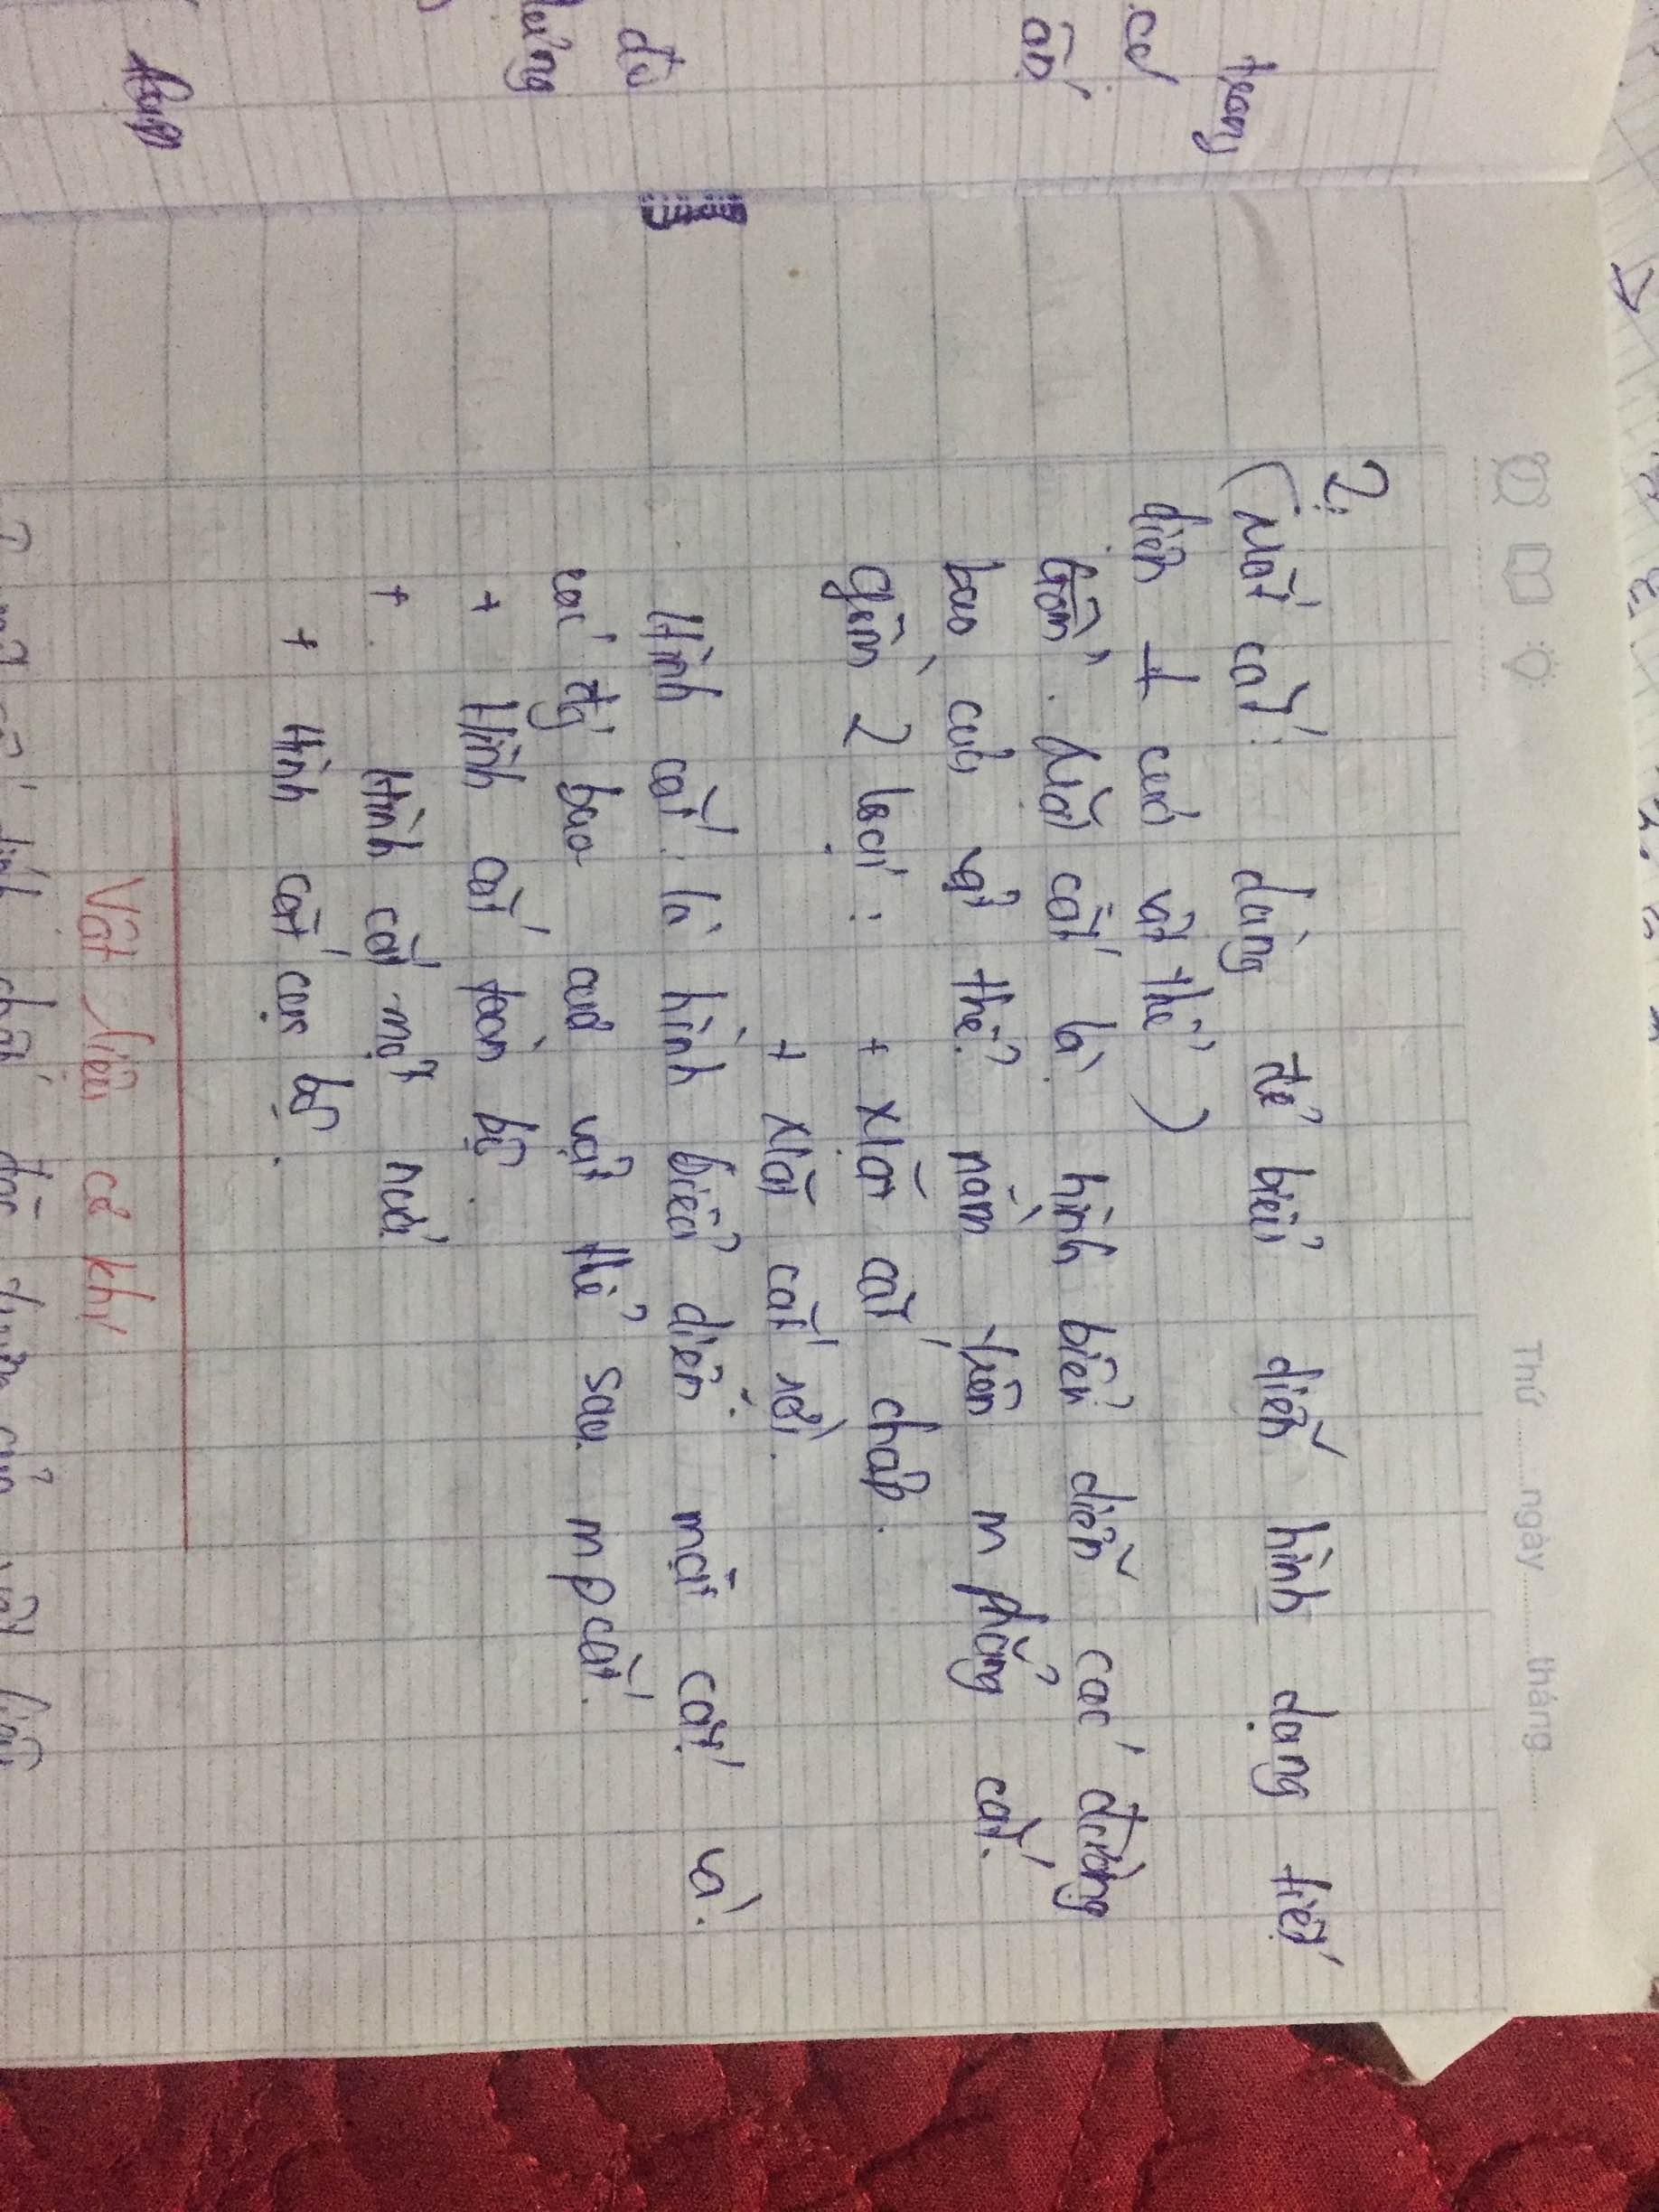 Thứ ngày tháng
2.
(Mặt cắt: dùng để biểu diễn hình dạng tiết
diện + của vật thể)
. Mặt cắt là hình biểu diễn các đường
bao của vật thể nằm trên m phẳng cắt.
gồm 2 loại: + Mặt cắt chập.
+ Mặt cắt rời.
Hình cắt: là hình biểu diễn mặt cắt và
các đg bao của vật thể sau mp cắt.
+ Hình cắt toàn bộ.
+ Hình cắt một nửa
+ Hình cắt cục bộ.
Vật liệu cơ khí
trong
cơ
đo